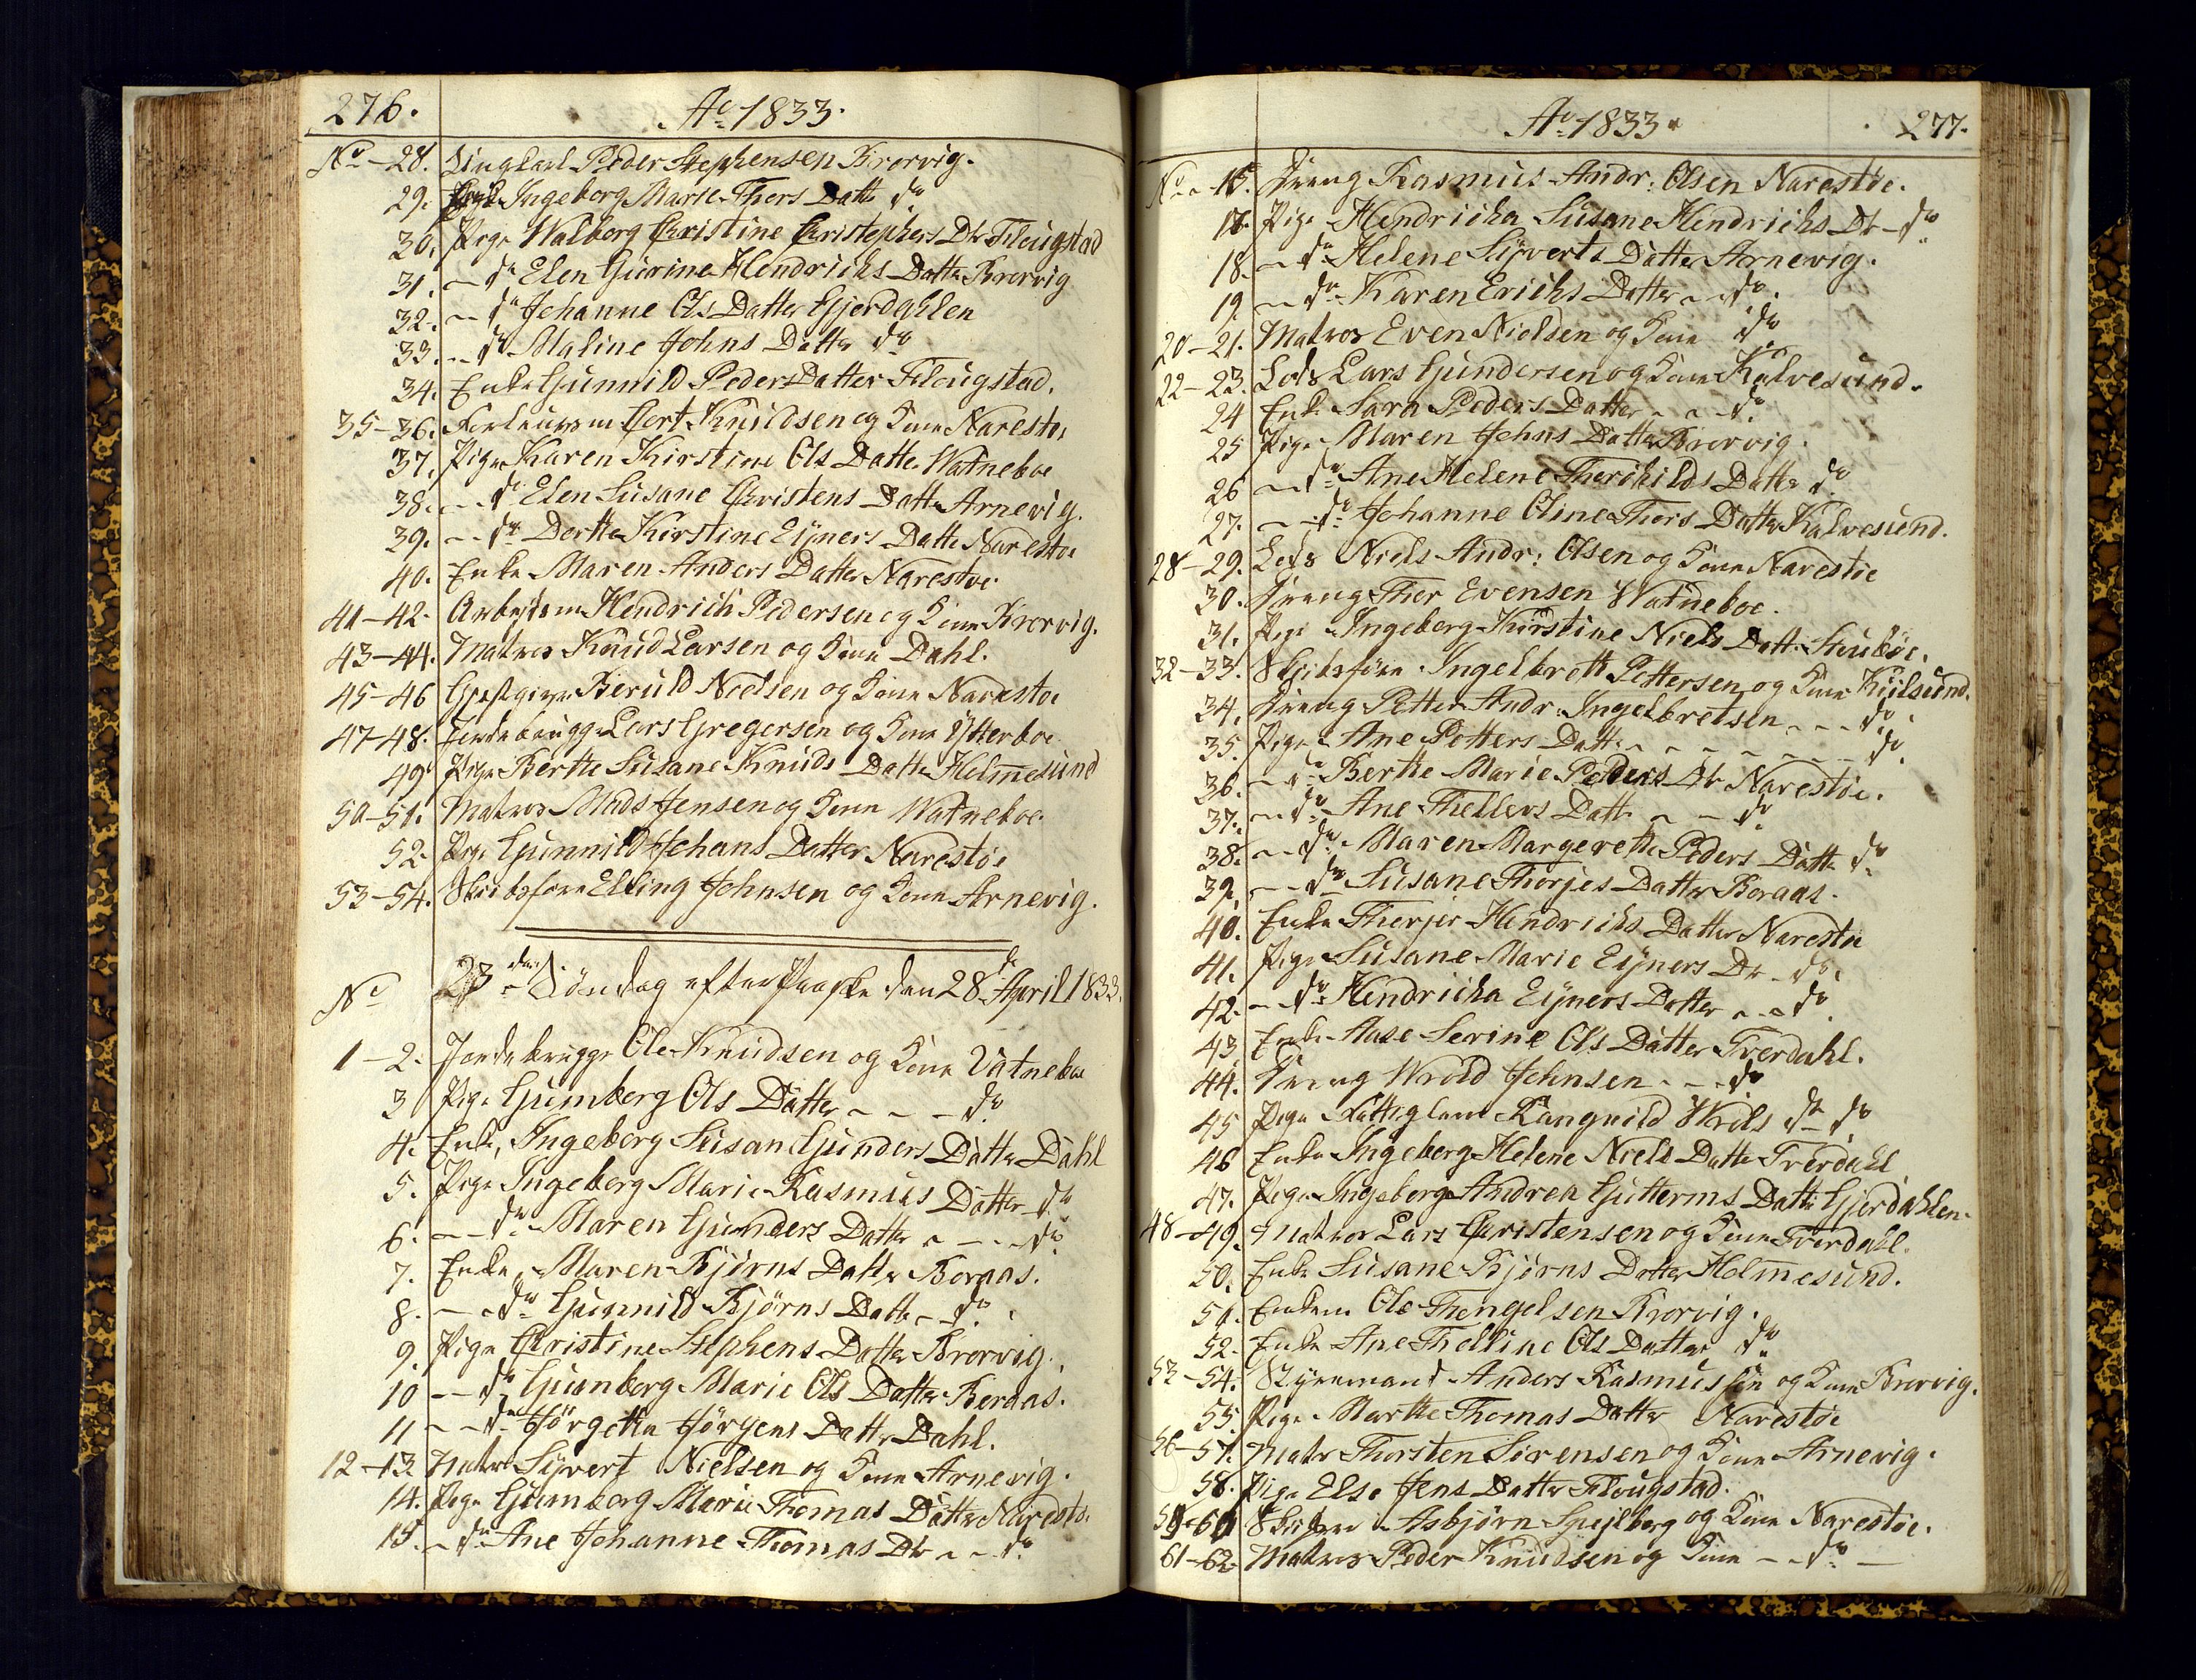 276. Ao 1833.
No - 28. Ungkarl Peder Stephensen Krorvig.
29. Pige Ingeborg Marie Thors Datter do
30. Pige Walborg Christine Christophers Dtr Flougstad
31. — do Elen Gurine Hendrichs Datter Krorvig
32. — do Johanne Ols Datter Gjerdahlen
33. — do Maline Johns Datter do
34. Enke Gunnild Peders Datter Flougstad.
35-36. Cort Knudsen og Kone Narestøe
37. Pige Karen Kirstine Ols Datter Watneboe
38. — do Elen Susane Christens Datter Arnevig.
39. — do Dorthe Kirstine Eyners Datter Narestøe
40. Enke Maren Anders Datter Narestøe.
41-42. Arbejdsm Hendrich Pedersen og Kone Krorvig.
43-44. Matros Knud Larsen og Kone Dahl.
45-46 Gjestgiver Beruld Nielsen og Kone Narestøe
47-48. Jordebrugger Lars Gregersen og Kone Ytterboe
49 Pige Berthe Susane Knuds Datter Holmesund
50-51. Matros Mads Jensen og Kone Watneboe.
52. Pige Gunnild Johans Datter Narestøe
53-54. Skibsfører Elling Johnsen og Kone Arnevig.
No 3die Søndag efter Paaske den 28de April 1833.
1-2. Jordebrugger Ole Knudsen og Kone Vatneboe
3 Pige Gumberg Ols Datter — — do
4. Enke, Ingeborg Susan Gunders Datter Dahl
5. Pige Ingeborg Marie Rasmus Datter do
6. — do Maren Gunders Datter — — do
7. Enke Maren Bjørns Datter Boraas.
8. — do Gunnild Bjørns Datter — do.
9. Pige Christine Stephens Datter Krorvig.
10 — do Gunborg Marie Ols Datter Boraas.
11 — do Jørgethe Jørgens Datter Dahl.
12-13 Matros Syvert Nielsen og Kone Arnevig.
14. Pige Gumborg Marie Thomas Datter Narestø.
15. — do Ane Johanne Thomas Dtr — do
Ao 1833. 277.
No - 16. Dreng Rasmus Andr: Olsen Narestøe.
17. Pige Hendricha Susane Hendrichs Dtr — do
18. — do Helene Syverts Datter Arnevig.
19. — do Karen Erichs Datter — do.
20-21. Matros Even Nielsen og Kone do
22-23. Lods Lars Gundersen og Kone Kalvesund.
24 Enke Sara Peders Datter — — do
25 Pige Maren Johns Datter Krorvig.
26 — do Ane Helene Therkilds Datter do
27. — do Johanne Oline Thors Datter Kalvesund.
28-29. Lods Niels Andr: Olsen og Kone Narestøe
30. Dreng Thor Evensen Watneboe.
31. Pige Ingeborg Kirstine Niels Datt. Stuebøe.
32-33. Skibsfører Ingelbrett Pettersen og Kone Kiilsund.
34. Dreng Petter Andr: Ingelbretsen — — do.
35. Pige Ane Petters Datt. — — — — do.
36. — do Berthe Marie Peders Dtr Narestøe.
37. — do Ane Thellevs Datt — — do
38. — do Maren Margrethe Peders Datter do
39. — do Susane Thorjes Datter Boraas.
40. Enke Thorjer Hendrichs Datter Narestøe
41. Pige Susane Marie Eyners Dr — do.
42. — do Hendricha Eyners Datter — do
43. Enke Aase Serine Ols Datter Tverdahl.
44. Dreng Wrold Johnsen — — do
45 Pige Ranguild Wrols do do
46 Enke Ingeborg Helene Niels Datter Tverdahl
47. Pige Ingeborg Andrea Gutterms Datter Gjerdahlen.
48-49. Matros Lars Christensen og Kone Tverdahl.
50. Enke Susane Bjørns Datter Holmesund.
51. Enkem Ole Thongelsen Krorvig.
52. Enke Ane Tholline Ols Datter do
53-54. Styremand Anders Rasmussen og Kone Krorvig.
55. Pige Marthe Thomas Datter Narestøe
56-57. Matr Thorsten Sørensen og Kone Arnevig.
58. Pige Else Jens Datter Flougstad.
59-60 Asbjørn Spejlberg og Kone Narestøe.
61-62. Matros Peder Knudsen og Kone — do —